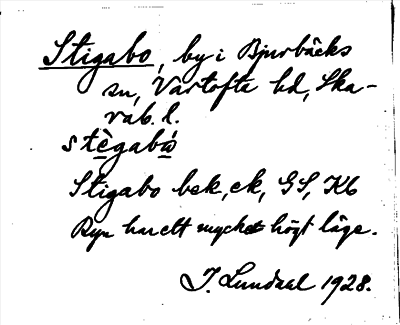 Stigabo, by i Bjurbäcks
sn, Vartofta hd, Ska-
rab. l.
stègabó̱
Stigabo bek, ek, GS, Kb
Byn har ett mycket högt läge.
J. Lundahl 1928.